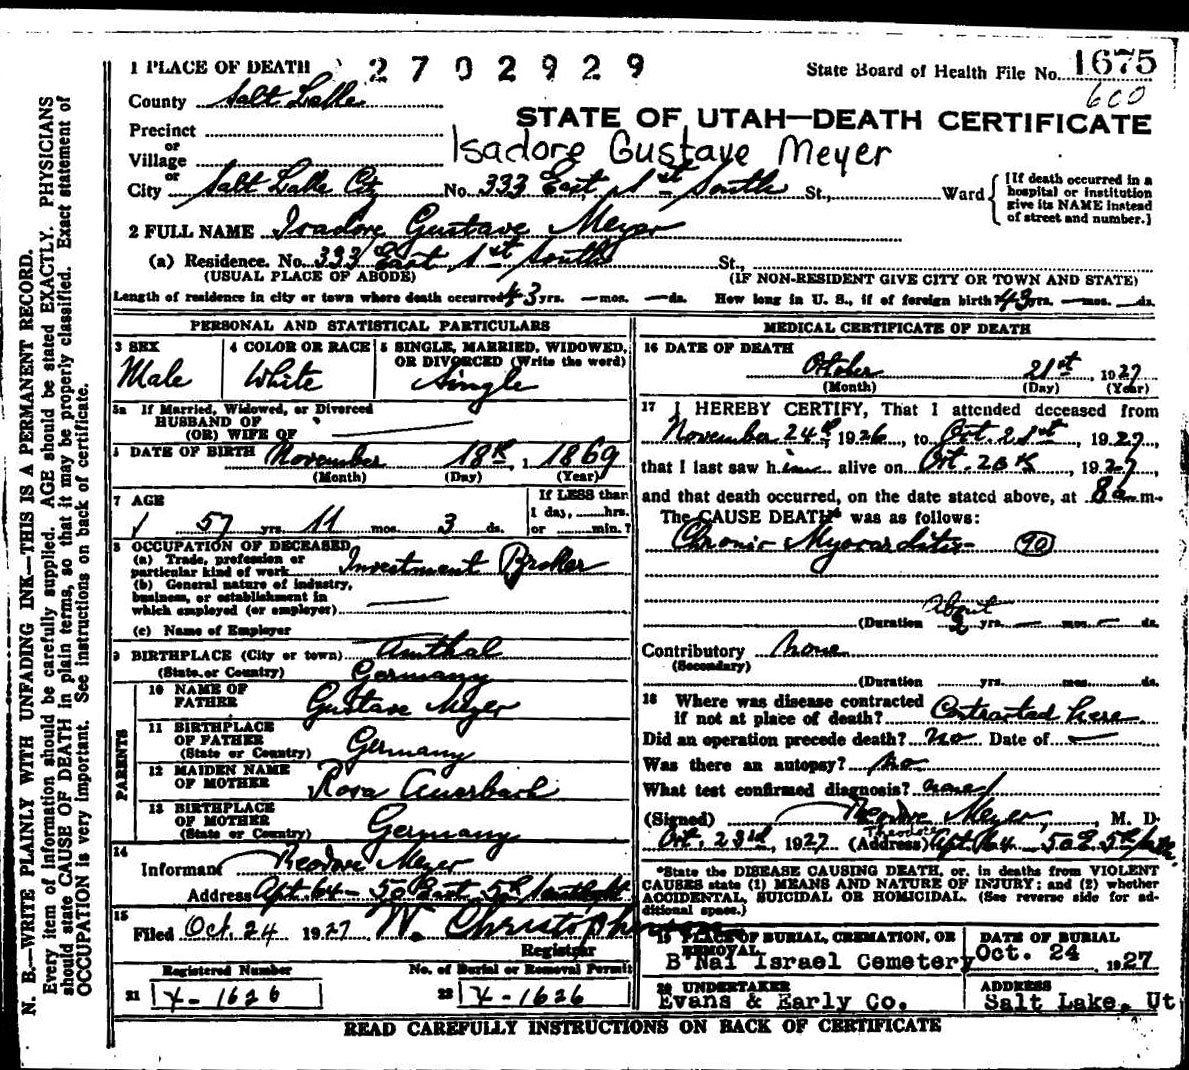 1 PLACE OF DEATH 2702929 State Board of Health File No. 1675
County Salt Lake 600
STATE OF UTAH—DEATH CERTIFICATE
Precinct
or
Village Isadore Gustave Meyer
or
City Salt Lake City No. 333 East, 1st South St., Ward
[If death occurred in a hospital or institution give its NAME instead of street and number.]
2 FULL NAME Isadore Gustave Meyer
(a) Residence. No. 333 East 1st South St.,
(USUAL PLACE OF ABODE) (IF NON-RESIDENT GIVE CITY OR TOWN AND STATE)
Length of residence in city or town where death occurred 43 yrs. — mos. — ds. How long in U. S., if of foreign birth? 43 yrs. — mos. — ds.
PERSONAL AND STATISTICAL PARTICULARS
3 SEX
Male
4 COLOR OR RACE
White
5 SINGLE, MARRIED, WIDOWED, OR DIVORCED (Write the word)
Single
5a If Married, Widowed, or Divorced
HUSBAND OF
(OR) WIFE OF
6 DATE OF BIRTH November 18th, 1869
(Month) (Day) (Year)
7 AGE
57 yrs. 11 mos. 3 ds.
If LESS than
1 day, hrs.
or min.?
8 OCCUPATION OF DECEASED
(a) Trade, profession or
particular kind of work Investment Broker
(b) General nature of industry,
business, or establishment in
which employed (or employer)
(c) Name of Employer
9 BIRTHPLACE (City or town)
(State or Country) Germany
PARENTS
10 NAME OF FATHER Gustave Meyer
11 BIRTHPLACE OF FATHER (State or Country) Germany
12 MAIDEN NAME OF MOTHER Rosa Auerbach
13 BIRTHPLACE OF MOTHER (State or Country) Germany
14
Informant Theodore Meyer
Address Apt. 64 - 50 East 5th South
15
Filed Oct. 24 1927 W. Christopherson
Registrar
Registered Number No. of Burial or Removal Permit
21 X-1626 22 X-1626
MEDICAL CERTIFICATE OF DEATH
16 DATE OF DEATH
October 21st, 1927
(Month) (Day) (Year)
17 I HEREBY CERTIFY, That I attended deceased from
November 24th 1926, to Oct. 21st, 1927,
that I last saw him alive on Oct. 20th, 1927,
and that death occurred, on the date stated above, at 8 a.m.
The CAUSE DEATH* was as follows:
Chronic Myocarditis 90
About
(Duration 2 yrs. — mos. — ds.
Contributory none
(Secondary)
(Duration yrs. mos. ds.
18 Where was disease contracted
if not at place of death? Contracted here
Did an operation precede death? no Date of —
Was there an autopsy? no
What test confirmed diagnosis?
(Signed) Theodore Meyer, M. D.
Theodore
Oct. 23rd, 1927 (Address) Apt. 64 50 E. 5th
*State the DISEASE CAUSING DEATH, or, in deaths from VIOLENT
CAUSES state (1) MEANS AND NATURE OF INJURY; and (2) whether
ACCIDENTAL, SUICIDAL OR HOMICIDAL. (See reverse side for ad-
ditional space.)
19 PLACE OF BURIAL, CREMATION, OR REMOVAL
B'Nai Israel Cemetery
DATE OF BURIAL
Oct. 24 1927
20 UNDERTAKER
Evans & Early Co.
ADDRESS
Salt Lake, Ut
READ CAREFULLY INSTRUCTIONS ON BACK OF CERTIFICATE
N. B.—WRITE PLAINLY WITH UNFADING INK—THIS IS A PERMANENT RECORD.
Every item of information should be carefully supplied. AGE should be stated EXACTLY. PHYSICIANS
should state CAUSE OF DEATH in plain terms, so that it may be properly classified. Exact statement of
OCCUPATION is very important. See instructions on back of certificate.